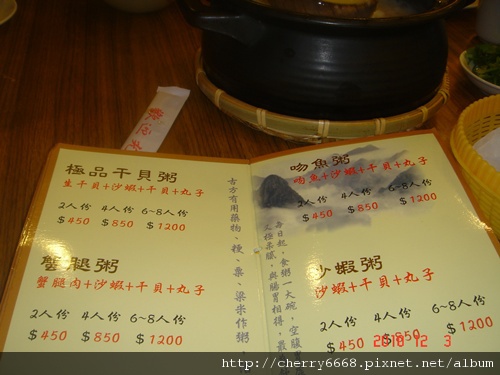 歡迎光
極品干貝粥
生干貝+沙蝦+干貝+丸子
2人份 4人份 6~8人份
$450 $850 $1200
蟹腿粥
蟹腿肉+沙蝦+干貝+丸子
2人份 4人份 6~8人份
$450 $850 $1200
古方有用藥物、粳、粟、粱米作粥，
吻魚粥
吻魚+沙蝦+干貝+丸子
2人份 4人份 6~8人份
$450 $850 $1200
每日起，食粥一大碗，空腹
又極柔膩，與腸胃相得，最
沙蝦粥
沙蝦+干貝+丸子
2人份 4人份 6~8人份
$450 $850 $1200
2010 12 3
http://cherry6668.pixnet.net/album